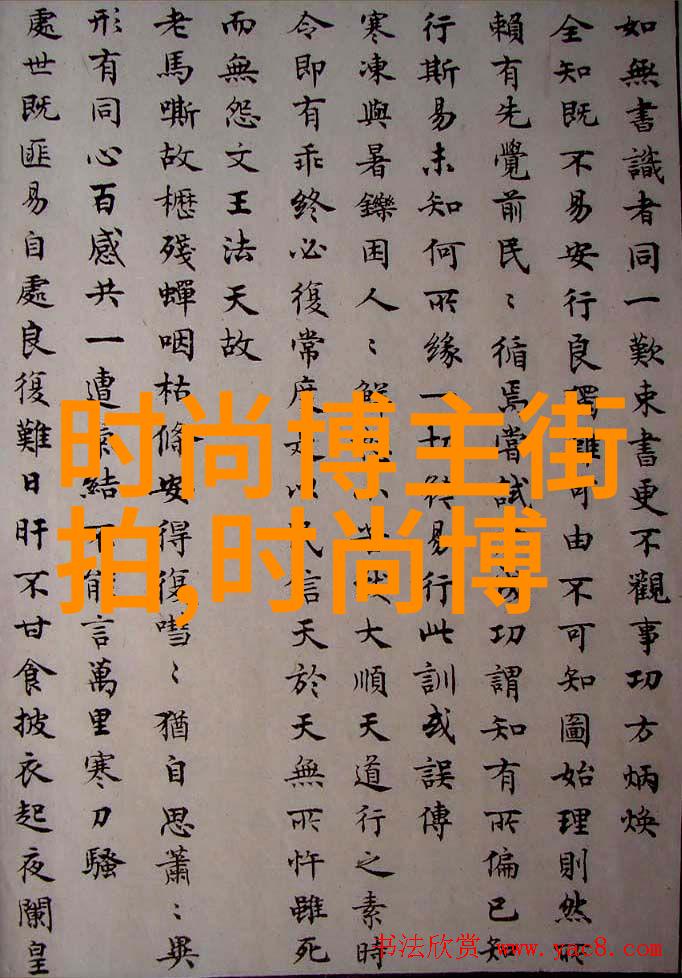 如無書識者同一歎束書更不觀事功方炳煥
全知既不易安行良獨難可由不可知圖始理則然所
賴有先覺前民〻循焉嘗試功謂知有所偏已知
行斯易未知何所緣一切易行此訓或誤傳
寒凍與暑鑠困人〻解大順天道行之素時
令即有乖終必復常度是以民信天於天無所忤雖死
而無怨文王法天故
老馬嘶故櫪殘蟬咽枯條安得復嘒〻猶自思蕭〻異
形有同心百感共一遭縈結不能言萬里寒刀騷
處世既匪易自處良復難日旰不甘食披衣起夜闌皇
时尚博主街
拍,时尚博
书法欣赏 www.yac8.com